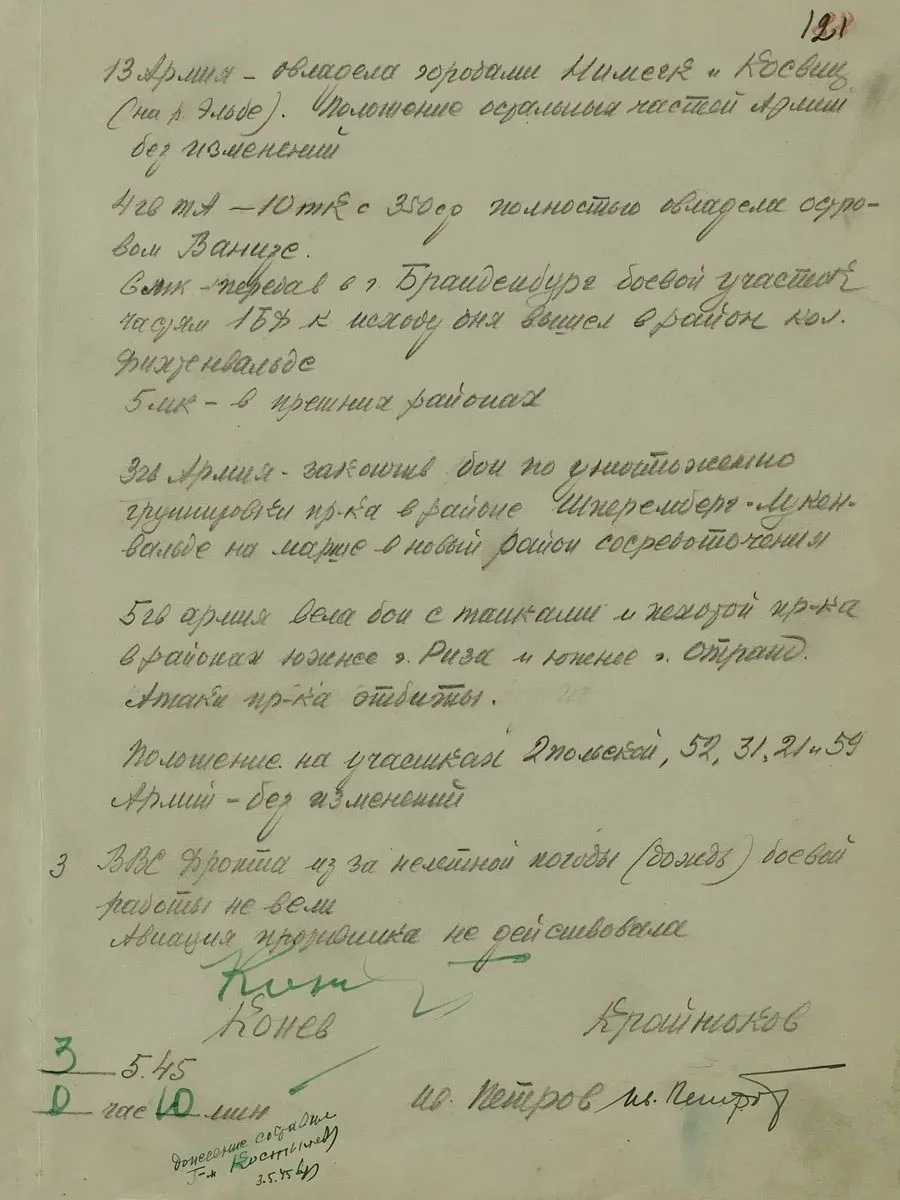 121
13 Армия – овладела городами Нимегк и Косвиг
(на р. Эльбе). Положение остальных частей Армии
без изменений
4 гв ТА – 10 тк с 350 сд полностью овладела остро-
вом Ванизе.
6 мк – передав в г. Бранденбург боевой участок
частям 1БФ к исходу дня вышел в район кол.
Фихтенвальде
5 мк – в прежних районах
3 гв Армия – закончив бои по уничтожению
группировки пр-ка в районе Шперемберг – Лукен-
вальде на марше в новый район сосредоточения
5 гв армия вела бои с танками и пехотой пр-ка
в районах южнее г. Риза и южнее г. Отранд.
Атаки пр-ка отбиты.
Положение на участках 2 польской, 52, 31, 21 и 59
Армий – без изменений
3 ВВС Фронта из за нелетной погоды (дождь) боевой
работы не вели
Авиация противника не действовала
Конев
Крайнюков
3 5.45
0 час 10 мин
ив. Петров ив. Петров
донесение составил
Г-м Костылев
3.5.45